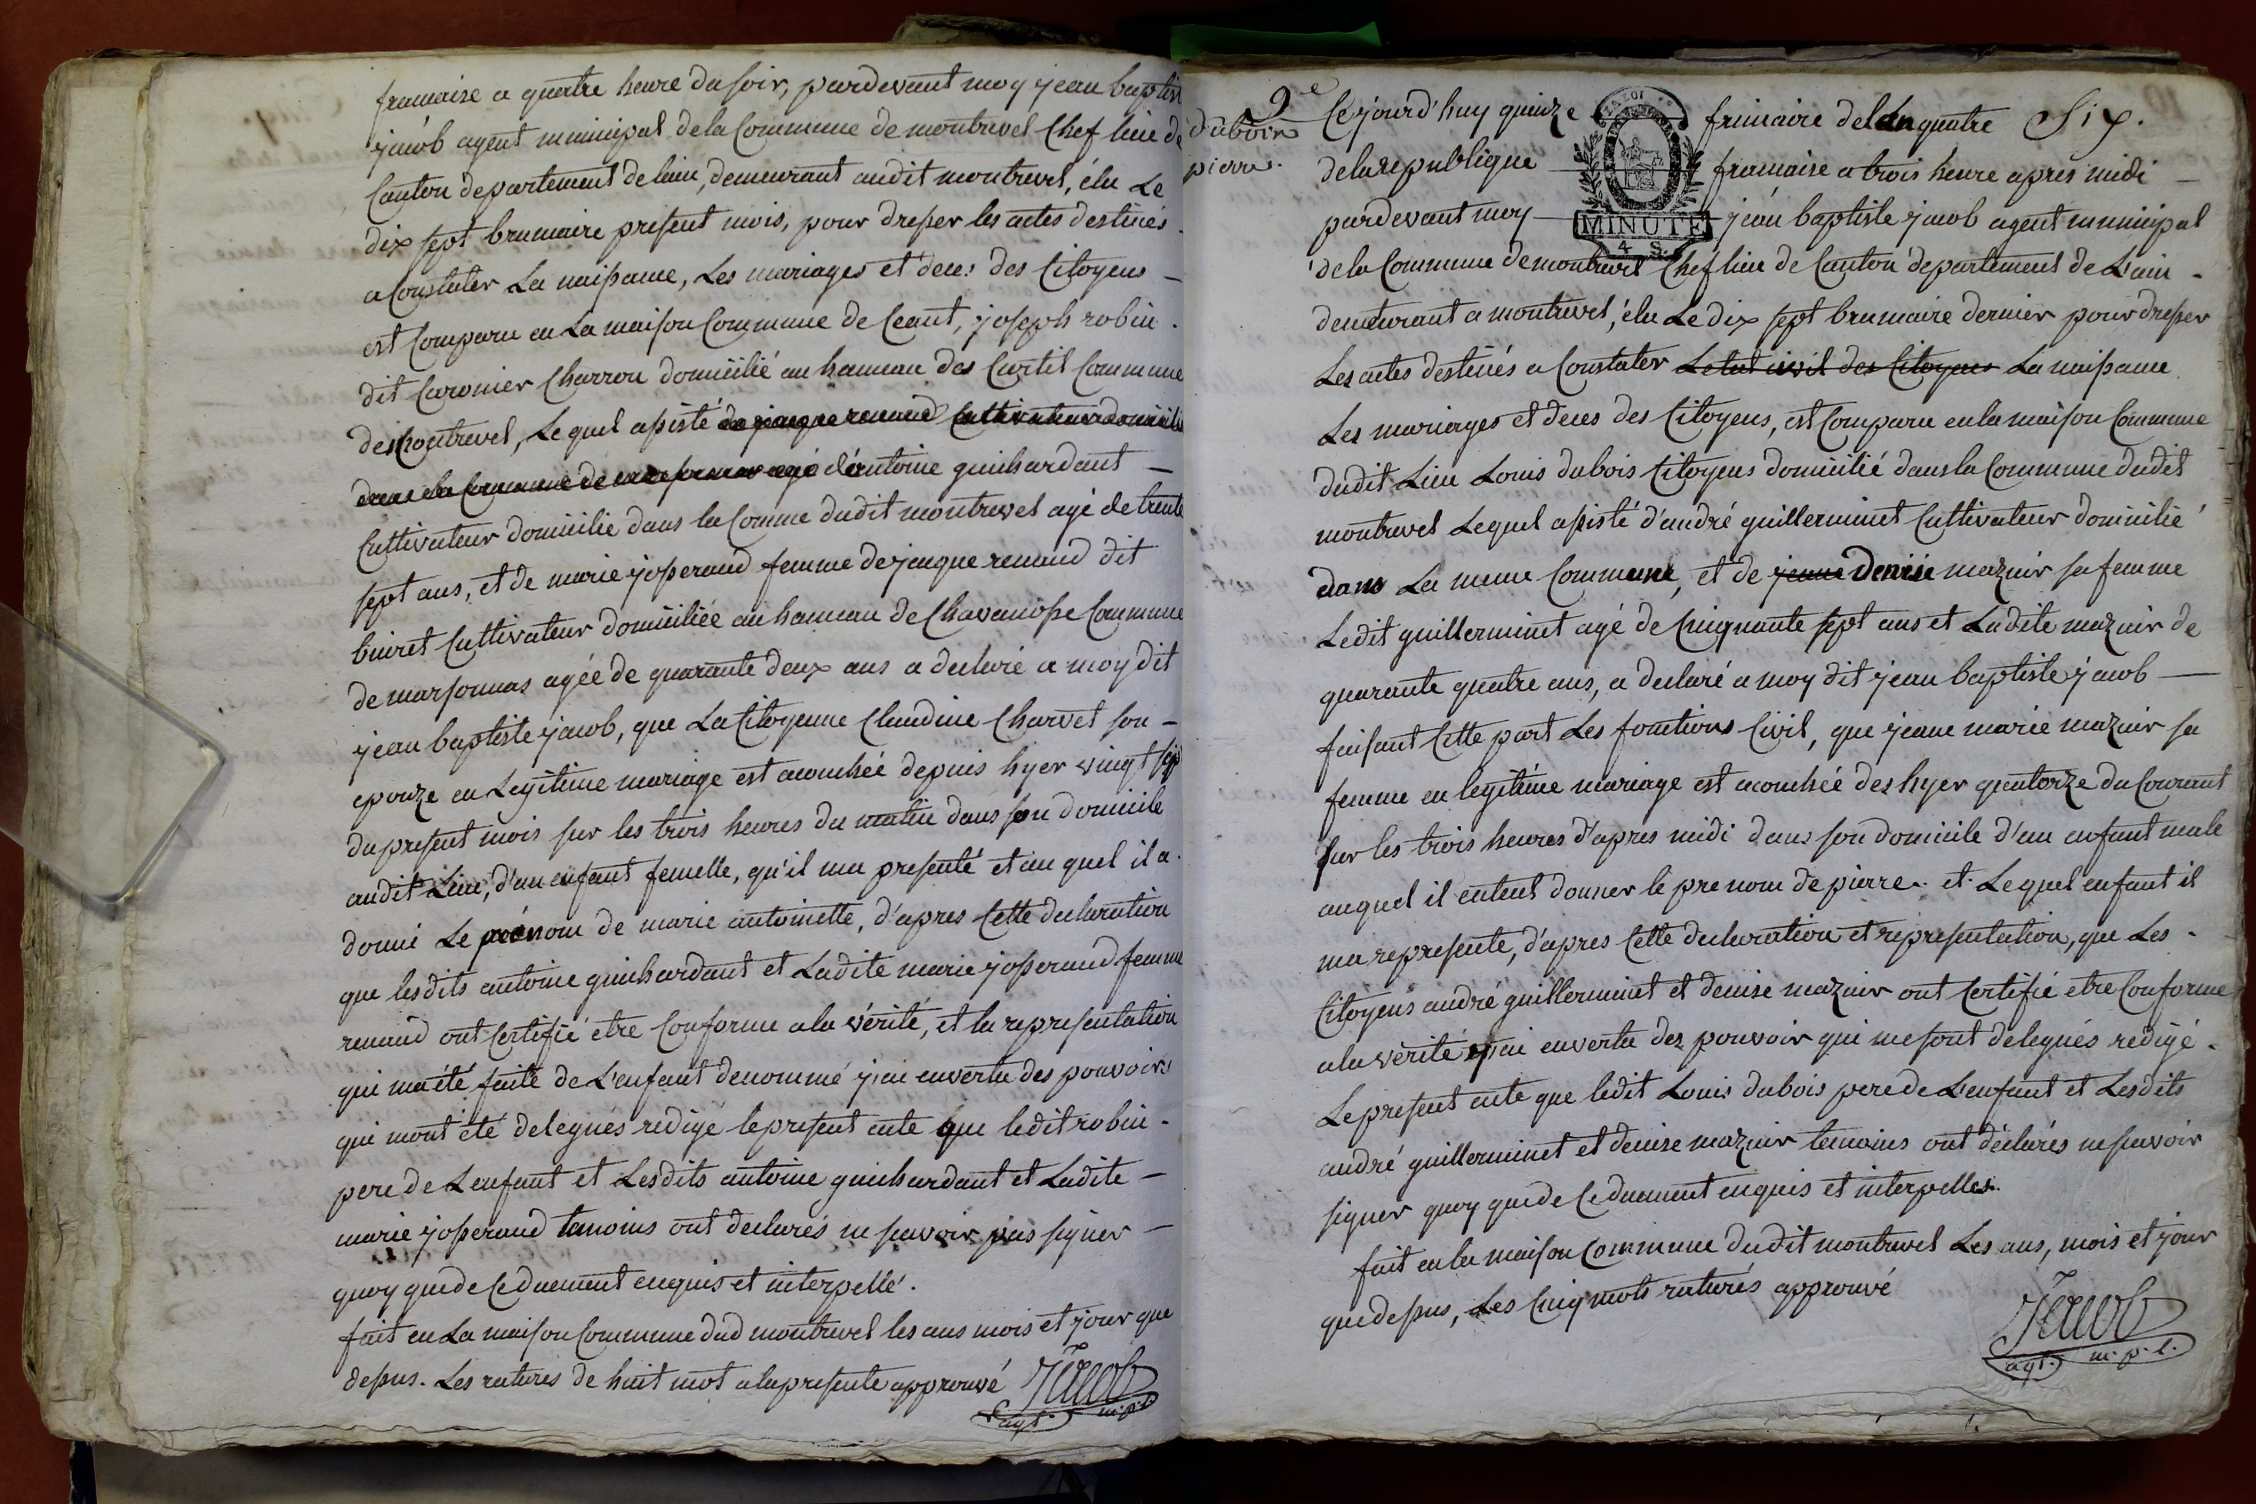 francaise a quatre heure du soir, pardevant moy jean baptist
jacob agent municipal de la Commune de montrevel Chef lieu de
Canton departement de lain, demeurant audit montrevel, élu Le
dix sept brumaire present mois, pour dresser les actes destinés
a Constater La naissance, Les mariages et deces des Citoyens —
est Comparu en La maison Commune de Ceant, joseph robin
dit Caronier Charron domicilié au hameau des Curtil Commune
de montrevel, Lequel assisté de jacque renaud Cultivateur domicilié
dans la Commune de agé d'antoine guichardant —
Cultivateur domicilie dans la Comme dudit montrevel agé de trente
sept ans, et de marie josserand femme de jacque renaud dit
buiret Cultivateur domiciliée au hameau de Chavanosse Commune
de marsonnas agée de quarante deux ans a declaré a moy dit
jean baptiste jacob, que La Citoyenne Claudine Charvet son —
epouze en Legitime mariage est acouchée depuis hyer vingt sep
du present mois sur les trois heures du matin dans son domicile
audit Lieu, d'un enfant femelle, qu'il ma presenté et au quel il a
donné Le prénom de marie antoinette, d'apres Cette declaration
que lesdits antoine guichardant et Ladite marie josserand femme
renaud ont Certifié étre Conforme a la vérité, et la representation
qui ma été faite de L'enfant denommé j'ai en vertu des pouvoirs
qui mont été delegués redigé le present acte que ledit robin
pere de L'enfant et Lesdits antoine guichardant et Ladite —
marie josserand temoins ont declarés ne scavoir pas signer —
quoy que de Ce duement enquis et interpellé.
fait en La maison Commune dud montrevel les ans mois et jour que
dessus. Les ratures de huit mot a la presente approuvé Jacob
agt. m.p.l.
9e
dubois
pierre.
Cejourd'huy quinze frimaire de Lan quatre Six.
de la republique francaise a trois heure apres midi —
pardevant moy — jean baptiste jacob agent municipal
MINUTE
4 S.
de la Commune de montrevel Chef lieu de Canton departement de L'ain
demeurant a montrevel, élu Le dix sept brumaire dernier pour dresser
Les actes destinés a Constater Letat civil des Citoyens La naissance
Les mariages et deces des Citoyens, est Comparu en la maison Commune
dudit Lieu Louis dubois Citoyens domicilié dans la Commune dudit
montrevel Lequel assisté d'andré guillerminet Cultivateur domicilié
dans La meme Commune, et de jeane Denise mazuir sa femme
Ledit guillerminet agé de Cinquante sept ans et Ladite mazuir de
quarante quatre ans, a declaré a moy dit jean baptiste jacob —
faisant Cette part Les fonctions Civil, que jeane marie mazuir sa
femme en legitime mariage est acouchée des hyer quatorze du Courant
sur les trois heures d'apres midi dans son domicile d'un enfant male
auquel il entent donner le prenom de pierre. et Lequel enfant il
ma represente, d'apres Cette declaration et representation, que Les
Citoyens andré guillerminet et denise mazuir ont Certifié etre Conforme
a la vérité j'ai en vertu des pouvoir qui me sont delegués redigé
Le present acte que ledit Louis dubois pere de L'enfant et Lesdits
andré guillerminet et denise mazuir temoins ont déclarés ne scavoir
signer quoy que de Ce duement enquis et interpellés.
fait en la maison Commune dudit montrevel Les ans, mois et jour
que dessus, Les Cinq mots raturés approuvé
Jacob
agt. m.p.l.